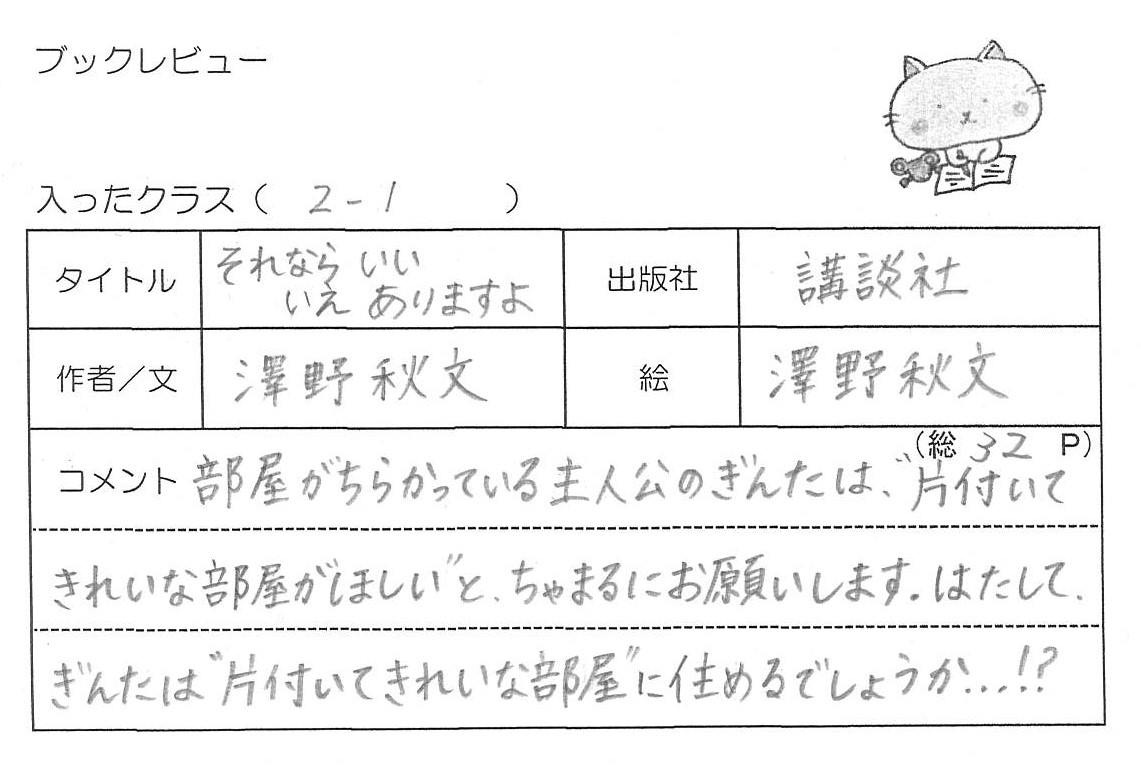 ブックレビュー
入ったクラス( 2-1 )
タイトル それなら いい
いえ ありますよ
出版社 講談社
作者/文 澤野秋文 絵 澤野秋文
(総 32 P)
コメント 部屋がちらかっている主人公のぎんたは、“片付いて
きれいな部屋がほしい”と、ちゃまるにお願いします。はたして、
ぎんたは“片付いてきれいな部屋”に住めるでしょうか...!?